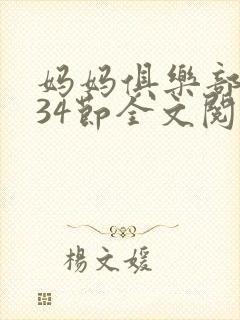 妈妈俱樂部
34節全文閱
楊文媛